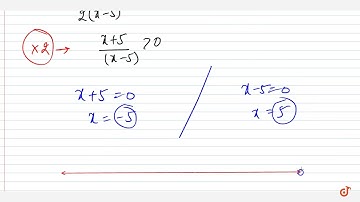 2(x-5)
×2 → x+5/(x-5) > 0
x+5=0 / x-5=0
x=-5 x=5